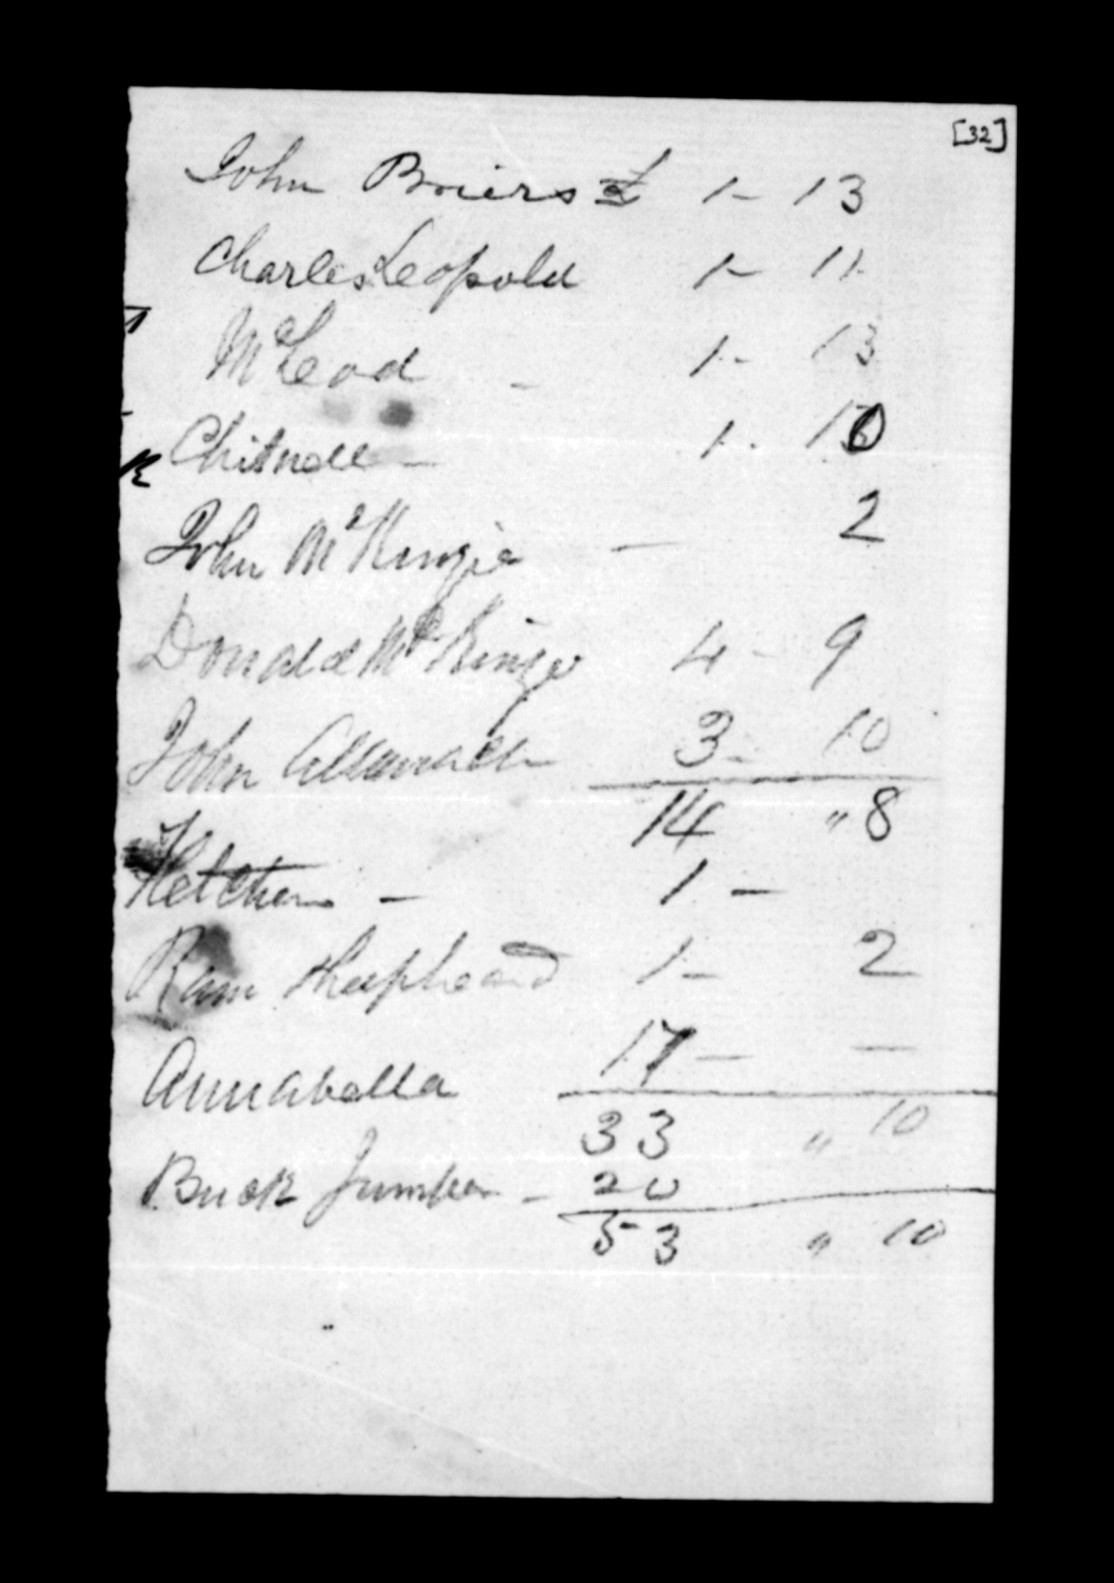 [32]
John Briers £ 1 - 13
Charles Leopold 1 - 11
McLeod - 1 - 13
Chitnell - 1 - 10
John McKinzie - 2
Donald McKinzie 4 - 9
John 3 - 10
14 " 8
Fletcher - 1 -
Ram Shepheard 1 - 2
Annabella 17 - -
33 " 10
Buck Jumper - 20
53 " 10